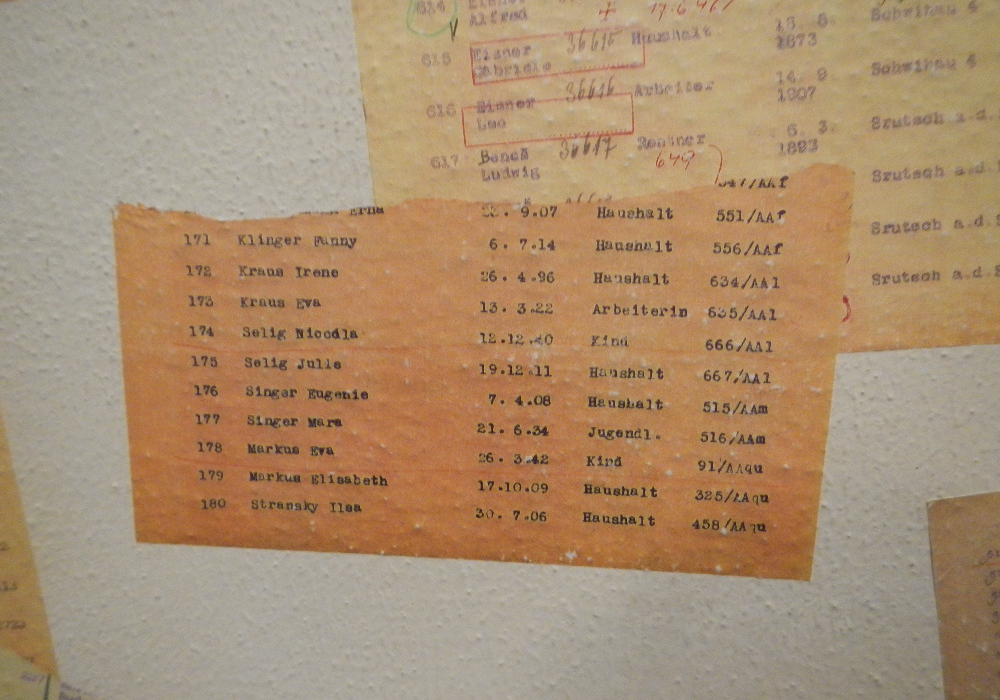 614
Alfred
615 Eisner 36615 Haushalt
Gabriele 1873
Schwihau 4
616 Eisner 36616 Arbeiter 14. 9
Leo 1907
Schwihau 4
617 Beneš 36617 Rentner 6. 3.
Ludwig 649 1893
Srutsch a.d.
Srutsch a.d.
Srutsch a.d.
Srutsch a.d.
Erna 9.07 Haushalt 551/AAf
171 Klinger Fanny 6. 7.14 Haushalt 556/AAf
172 Kraus Irene 26. 4.96 Haushalt 634/AAl
173 Kraus Eva 13. 3.22 Arbeiterin 635/AAl
174 Selig Nicodla 12.12.40 Kind 666/AAl
175 Selig Julie 19.12.11 Haushalt 667/AAl
176 Singer Eugenie 7. 4.08 Haushalt 515/AAm
177 Singer Mara 21. 6.34 Jugendl. 516/AAm
178 Markus Eva 26. 3.42 Kind 91/AAqu
179 Markus Elisabeth 17.10.09 Haushalt 325/AAqu
180 Stransky Ilsa 30. 7.06 Haushalt 458/AAqu